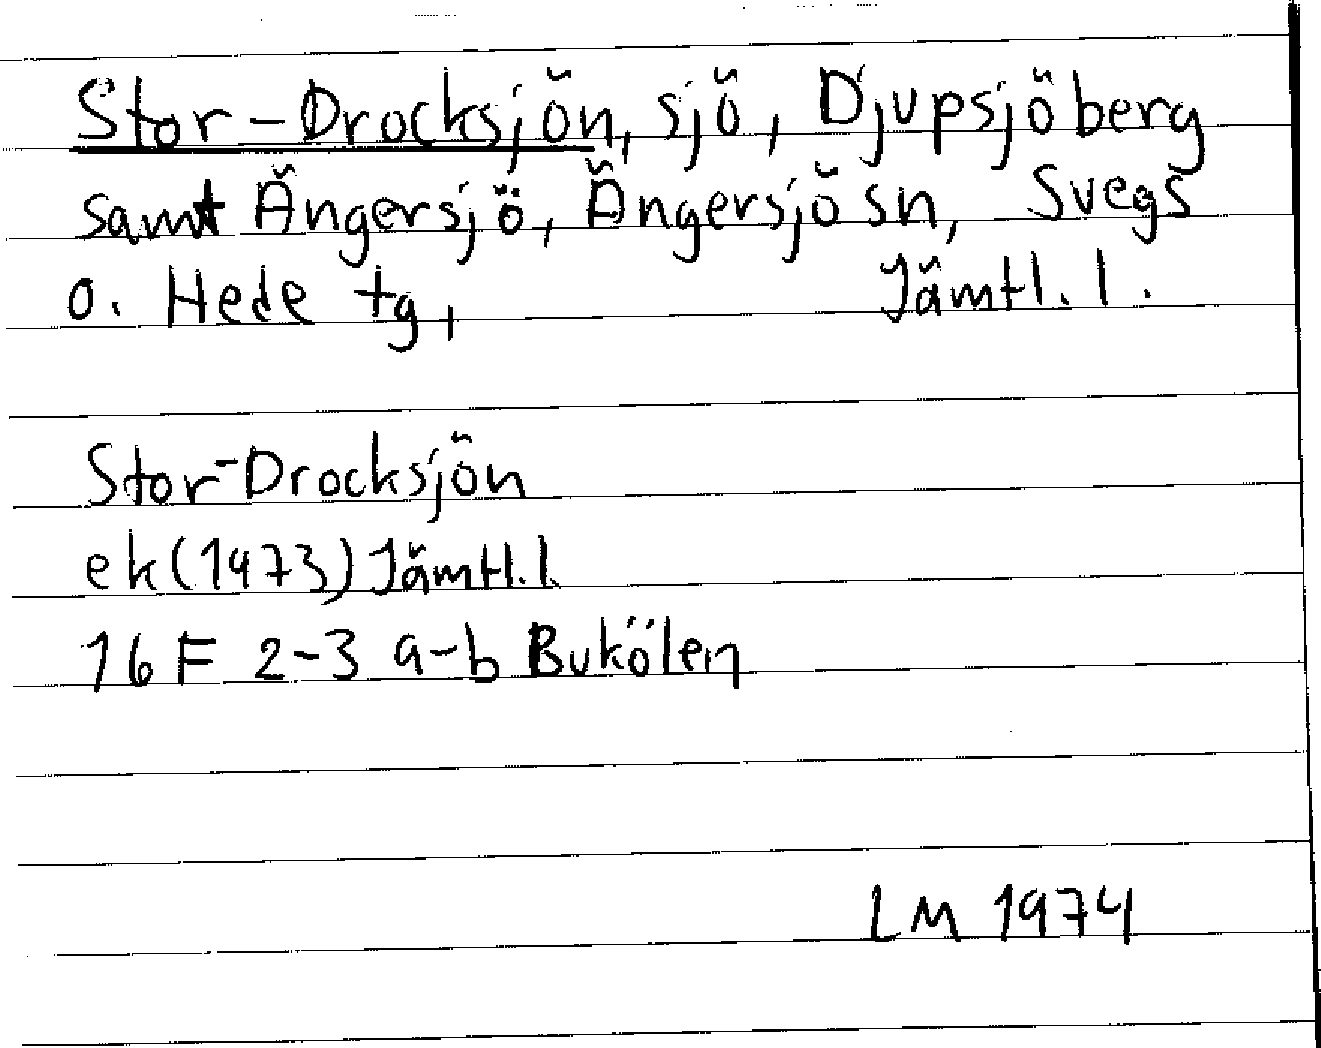 Stor-Drocksjön, sjö, Djupsjöberg
samt Ängersjö, Ängersjö sn, Svegs
o. Hede tg, Jämtl. l.
Stor-Drocksjön
ek (1973) Jämtl. l.
16 F 2-3 a-b Bukölen
LM 1974